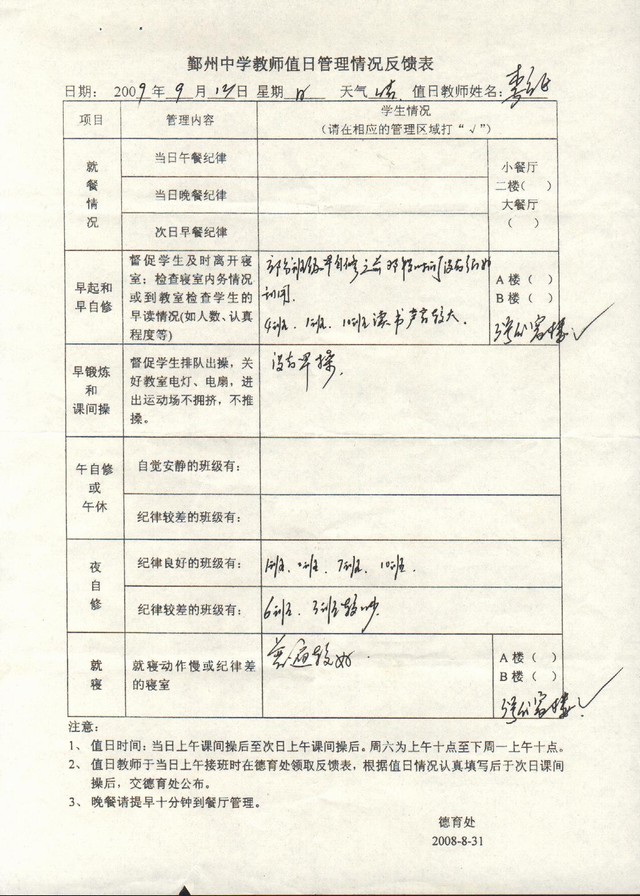 鄞州中学教师值日管理情况反馈表
日期： 2009年 9 月 日 星期 日 天气 晴 值日教师姓名：李
项目
管理内容
学生情况
（请在相应的管理区域打“√”）
就
餐
情
况
当日午餐纪律
当日晚餐纪律
次日早餐纪律
小餐厅
二楼（ ）
大餐厅
（ ）
早起和
早自修
督促学生及时离开寝
室；检查寝室内务情况
或到教室检查学生的
早读情况(如人数、认真
程度等)
部分班级早自修之前
利用.
4班、1班、10班读书声音较大
A 楼（ ）
B 楼（ ）
楼√
早锻炼
和
课间操
督促学生排队出操，关
好教室电灯、电扇，进
出运动场不拥挤，不推
搡。
没有早操.
午自修
或
午休
自觉安静的班级有：
纪律较差的班级有：
夜
自
修
纪律良好的班级有：
1班、 班、7班、10班.
纪律较差的班级有：
6班、 班较吵
就
寝
就寝动作慢或纪律差
的寝室
普遍较好.
A 楼（ ）
B 楼（ ）
楼.√
注意：
1、 值日时间：当日上午课间操后至次日上午课间操后。周六为上午十点至下周一上午十点。
2、 值日教师于当日上午接班时在德育处领取反馈表，根据值日情况认真填写后于次日课间
操后，交德育处公布。
3、 晚餐请提早十分钟到餐厅管理。
德育处
2008-8-31